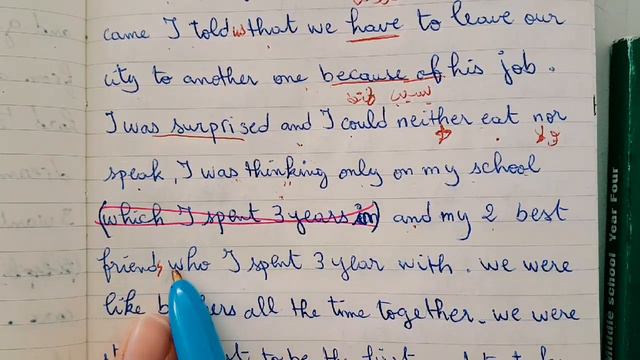 came I told us that we have to leave our
city to another one because of his job.
بسبب
I was surprised and I could neither eat nor
ولا
speak, I was thinking only on my school
(which I spent 3 years in) and my 2 best
friends who I spent 3 year with. we were
like all the time together. we were
to be the first
Middle school Year Four